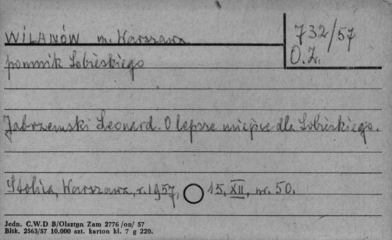 WILANÓW m. Warszawa
732/57
O.Z.
pomnik Sobieskiego
Jabrzemski Leonard. O lepsze miejsce dla Sobieskiego.
Stolica, Warszawa, r. 1957, 15. XII, nr. 50.
Jedn. C.W.D B/Olsztyn Zam 2776 /oo/ 57
Bltk. 2563/57 10.000 szt. karton kl. 7 g 220.